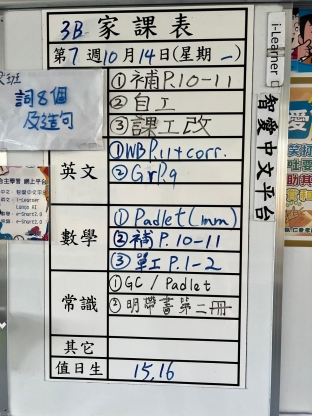 3B 家課表
第7週10月14日(星期一)
①補P.10-11
②自工
③課工改
英文
①WB P.11+corr.
②Gr P.9
數學
①Padlet(1mm)
②補P.10-11
③單工P.1-2
常識
①GC / Padlet
②明帶書第二冊
其它
值日生
15,16
詞8個
及造句
i-Learner
智愛中文平台